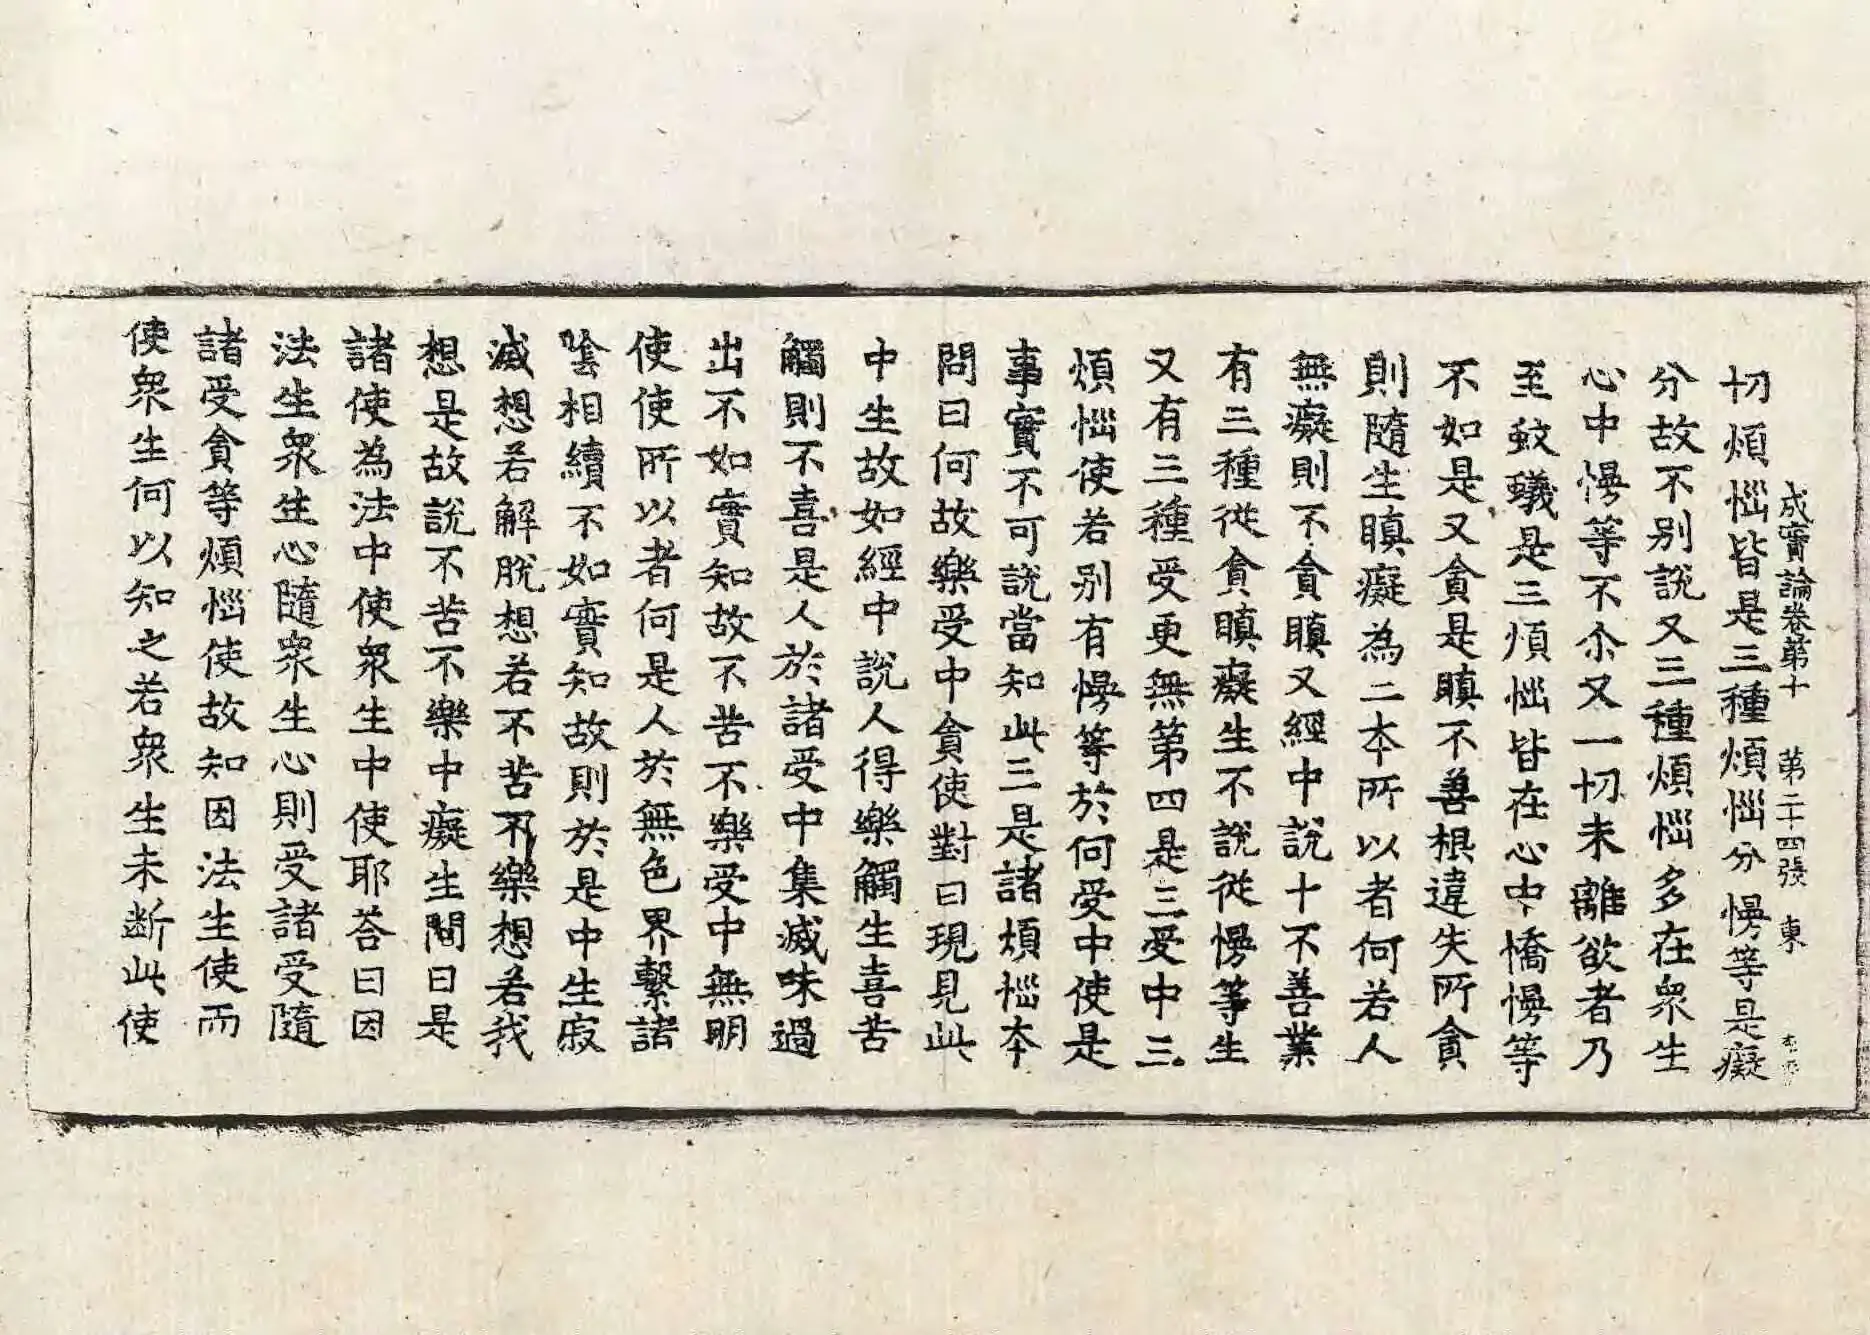 成實論卷第十 第二十四張 東
切煩惱皆是三種煩惱分慢等是癡
分故不别說又三種煩惱多在衆生
心中慢等不尒又一切未離欲者乃
至蚊蟻是三煩惱皆在心中憍慢等
不如是又貪是瞋不善根違失所貪
則隨生瞋癡為二本所以者何若人
無癡則不貪瞋又經中說十不善業
有三種從貪瞋癡生不說從慢等生
又有三種受更無第四是三受中三
煩惱使若别有慢等於何受中使是
事實不可說當知此三是諸煩惱本
問曰何故樂受中貪使對曰現見此
中生故如經中說人得樂觸生喜苦
觸則不喜是人於諸受中集滅味過
出不如實知故不苦不樂受中無明
使使所以者何是人於無色界繫諸
陰相續不如實知故則於是中生寂
滅想若解脫想若不苦不樂想若我
想是故說不苦不樂中癡生問曰是
諸使為法中使衆生中使耶荅曰因
法生衆生心隨衆生心則受諸受隨
諸受貪等煩惱使故知因法生使而
使衆生何以知之若衆生未断此使